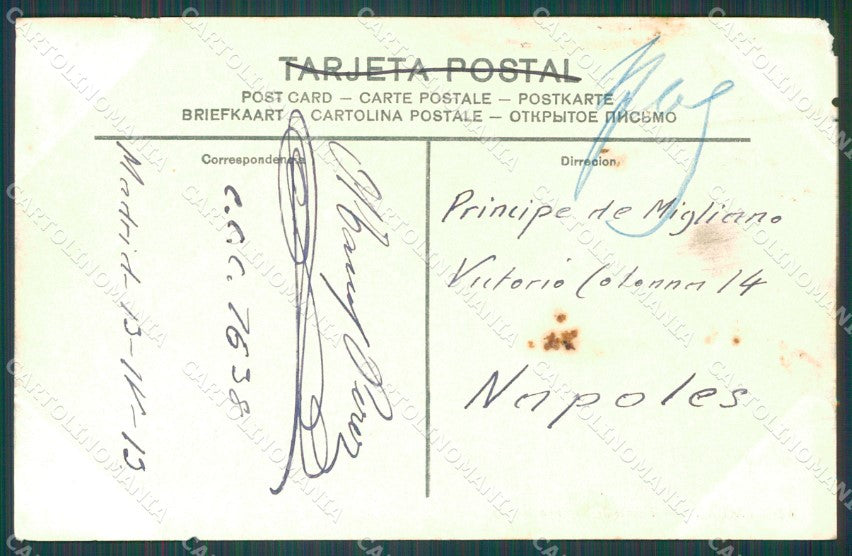 TARJETA POSTAL
POST CARD – CARTE POSTALE – POSTKARTE
BRIEFKAART – CARTOLINA POSTALE – ОТКРЫТОЕ ПИСЬМО
Correspondencia
Madrid-13-IV-13
C.C.C. 7638
Manuel Perez
Dirrecion
Principe de Migliano
Victorio Colonna 14
Napoles
CARTOLINOMANIA